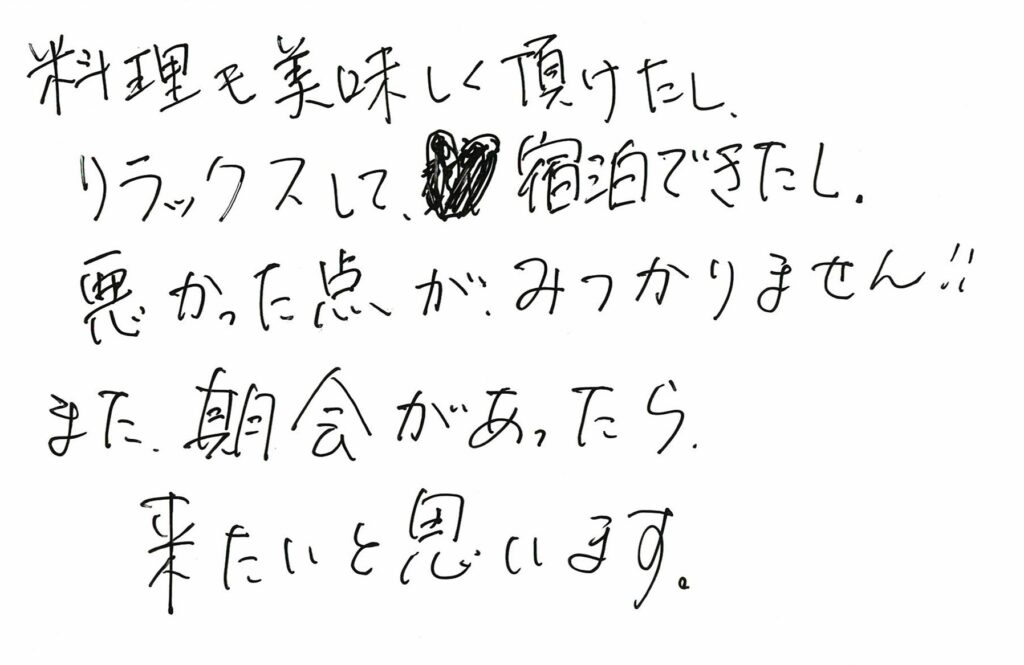 料理も美味しく頂けたし、
リラックスして、宿泊できたし、
悪かった点が、みつかりません!!
また、期会があったら、
来たいと思います。